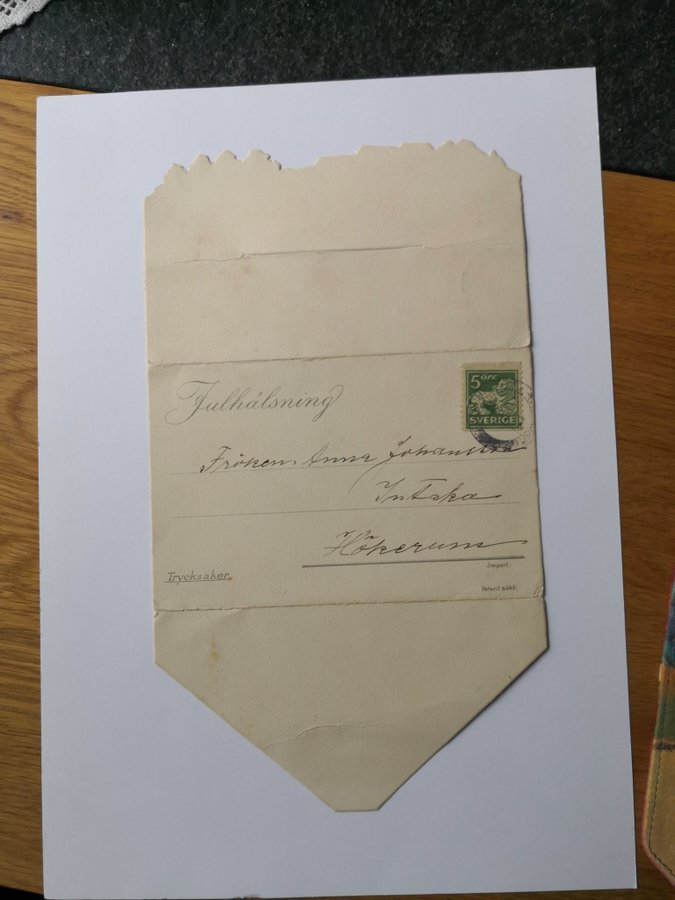 Julhälsning
5 ÖRE
SVERIGE
Fröken Anna Johansson
Intaka
Hökerum
Trycksaker.
Import.
Patent sökt.